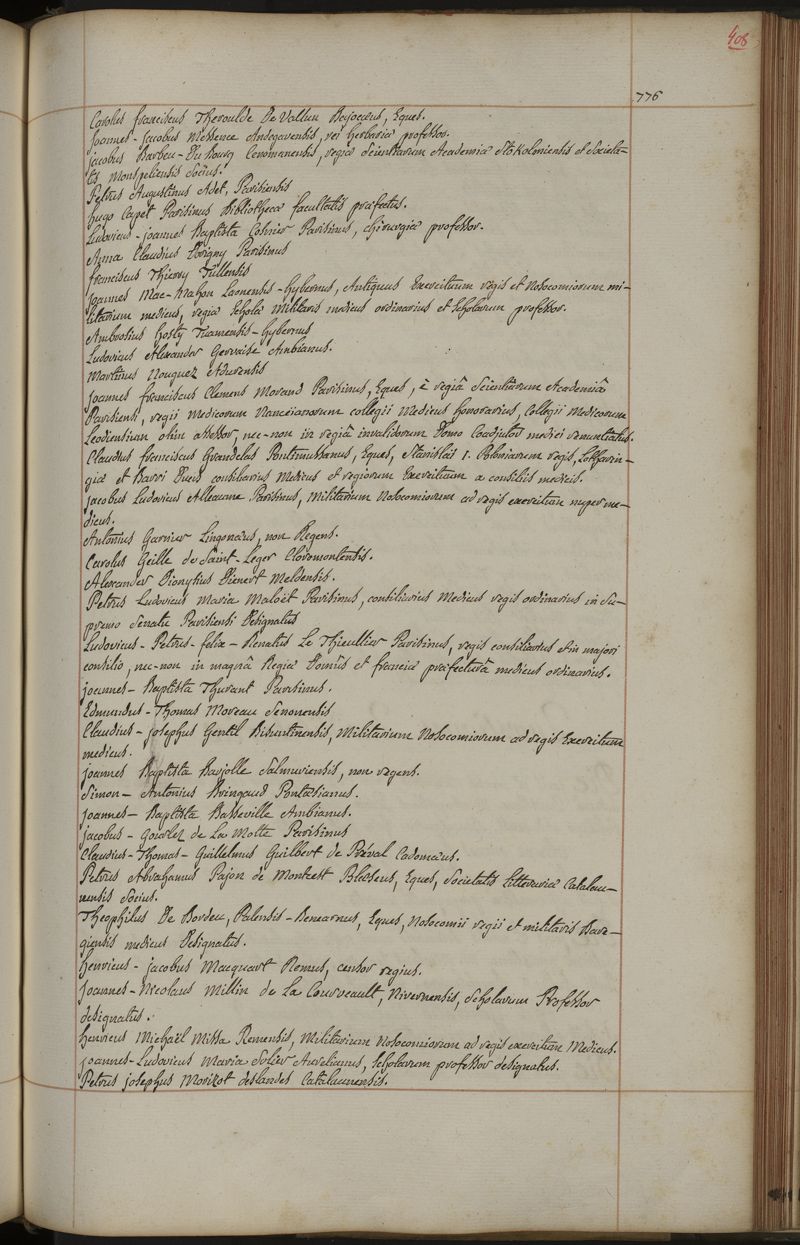 408
776
Carolus franciscus Theroulde De Vallun Bajocæus, Eques.
Joannes-Jacobus Messence Andegavensis, rei herbariæ professor.
Jacobus Barbeu-Du Bourg Cenomanensis, regiæ Scientiarum Academiæ Stokolmiensis et Societa-
tis Monspeliensis Socius.
Petrus Augustinus Adet, Parisiensis
hugo Capet Parisinus Bibliothecæ facultatis præfectus.
Ludovicus-joannes Baptista Cosnier Parisinus, chirurgiæ professor.
Anna Claudius Dorigny Parisinus
franciscus Thierry Tullensis
Joannes Mac-Mahon Laonensis-hybernus, Antiquus Exercituum regis et Nosocomiorum mi-
litarium medicus, regiæ Scholæ Militaris medicus ordinarius et Scholarum professor.
Ambrosius hosty Tuamensis-hybernus
Ludovicus Alexander Gervaise Ambianus.
Martinus Nouguez Adurensis
Joannes franciscus Clemens Morand Parisinus, Eques, è regiâ Scientiarum Academiâ
Parisiensi, regii Medicorum Nanceianorum collegii Medicus honorarius, Collegii Medicorum
Leodiensium olim assessor, nec-non in regiâ invalidorum Domo Coadjutor medici renuntiatus.
Claudius franciscus Grandclas Pontimussanus, Eques, Stanislai 1. Poloniarum regis, Lotharin-
giæ et Barri Ducis consiliarius Medicus et regiorum Exercituum a consiliis medicis.
jacobus Ludovicus Alleaume Parisinus, Militarium Nosocomiorum ad regis exercitum nuper me-
dicus.
Antonius Garnier Lingonæus, non Regens.
Carolus Geille de Saint-Leger Claromontensis.
Alexander Dionysius Dienert Meldensis.
Petrus Ludovicus Maria Maloët Parisinus, consiliarius Medicus regis ordinarius in Su-
premo Senatu Parisiensi Designatus
Ludovicus-Petrus-felix-Renatus Le Thieullier Parisinus, regis consiliarius et in majori
consilio, nec-non in magnâ Regiæ Domûs et franciæ præfecturâ medicus ordinarius.
joannes-Baptista Thurant Parisinus.
Edmundus-Thomas Moreau Senonensis
Claudius-josephus Gentil Bisuntinensis, Militarium Nosocomiorum ad regis Exercitum
medicus.
joannes Baptista Barjolle Salmuriensis, non regens.
Simon-Antonius Bringaud Pontasianus.
joannes-Baptista Basseville Ambianus.
jacobus-Gourlez de La Motte Parisinus
Claudius-Thomas-Guillelmus Guilbert de Préval Cadomæus.
Petrus Abrahamus Pajon de Moncets Blæseus, Eques, Societatis litterariæ Catalau-
nensis Socius.
Theophilus De Bordeu, Palensis-Benearnus, Eques, Nosocomii regii et militaris Bare-
giensis medicus Designatus.
henricus-jacobus Macquart Remus, censor regius.
joannes-Nicolaus Millin de La Courveault, Nivernensis, Scholarum Professor
designatus.
henricus Michaël Missa Remensis, Militarium Nosocomiorum ad regis exercitum Medicus.
joannes-Ludovicus Maria Solier Aurelianus, Scholarum professor designatus.
Petrus josephus Morizot deslandes Catalaunensis.